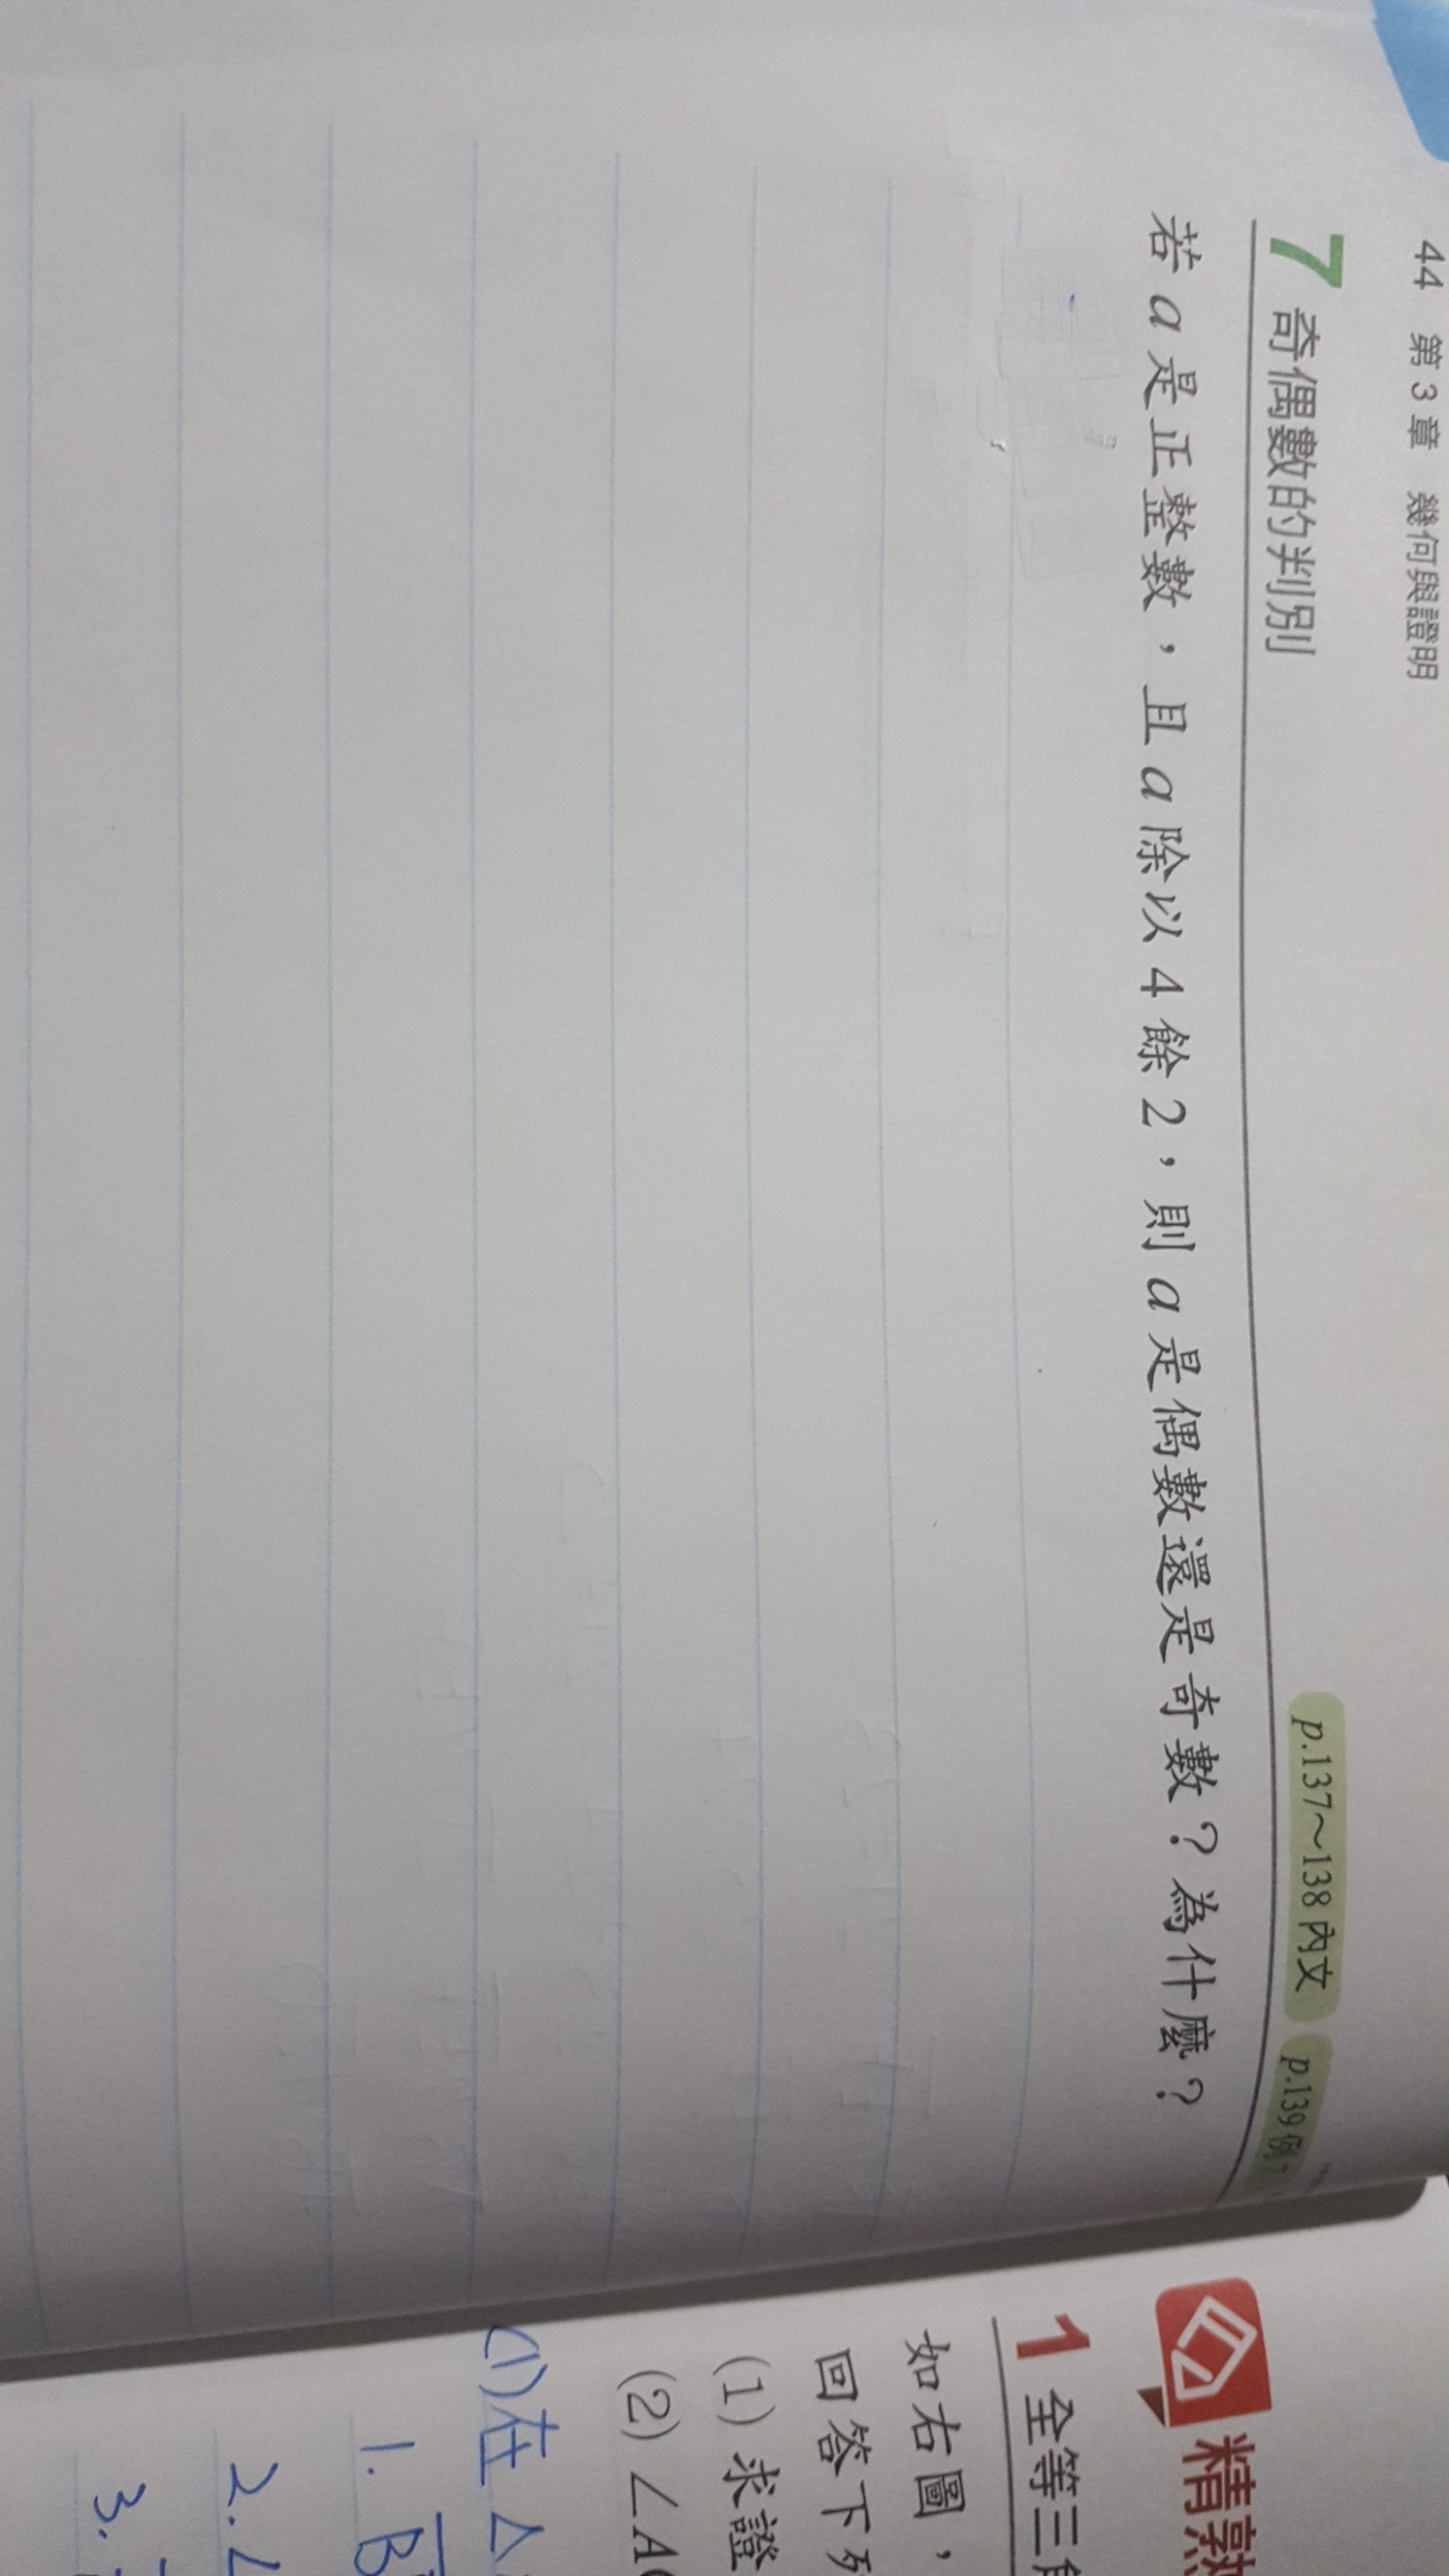 44 第 3 章 幾何與證明
7 奇偶數的判別 p.137～138 內文 p.139 例
若 a 是正整數，且 a 除以 4 餘 2，則 a 是偶數還是奇數？為什麼？
精熟
1 全等三
如右圖，
回答下
(1) 求證
(2) ∠A
(1)在△
1. B
2. ∠
3.